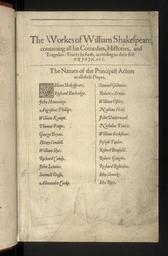 The Workes of William Shakespeare,
containing all his Comedies, Histories, and
Tragedies: Truely set forth, according to their first
ORIGINALL.
The Names of the Principall Actors
in all these Playes.
William Shakespeare.
Richard Burbadge.
John Hemmings.
Augustine Phillips.
William Kempt.
Thomas Poope.
George Bryan.
Henry Condell.
William Slye.
Richard Cowly.
John Lowine.
Samuell Crosse.
Alexander Cooke.
Samuel Gilburne.
Robert Armin.
William Ostler.
Nathan Field.
John Underwood.
Nicholas Tooley.
William Ecclestone.
Joseph Taylor.
Robert Benfield.
Robert Goughe.
Richard Robinson.
John Shancke.
John Rice.